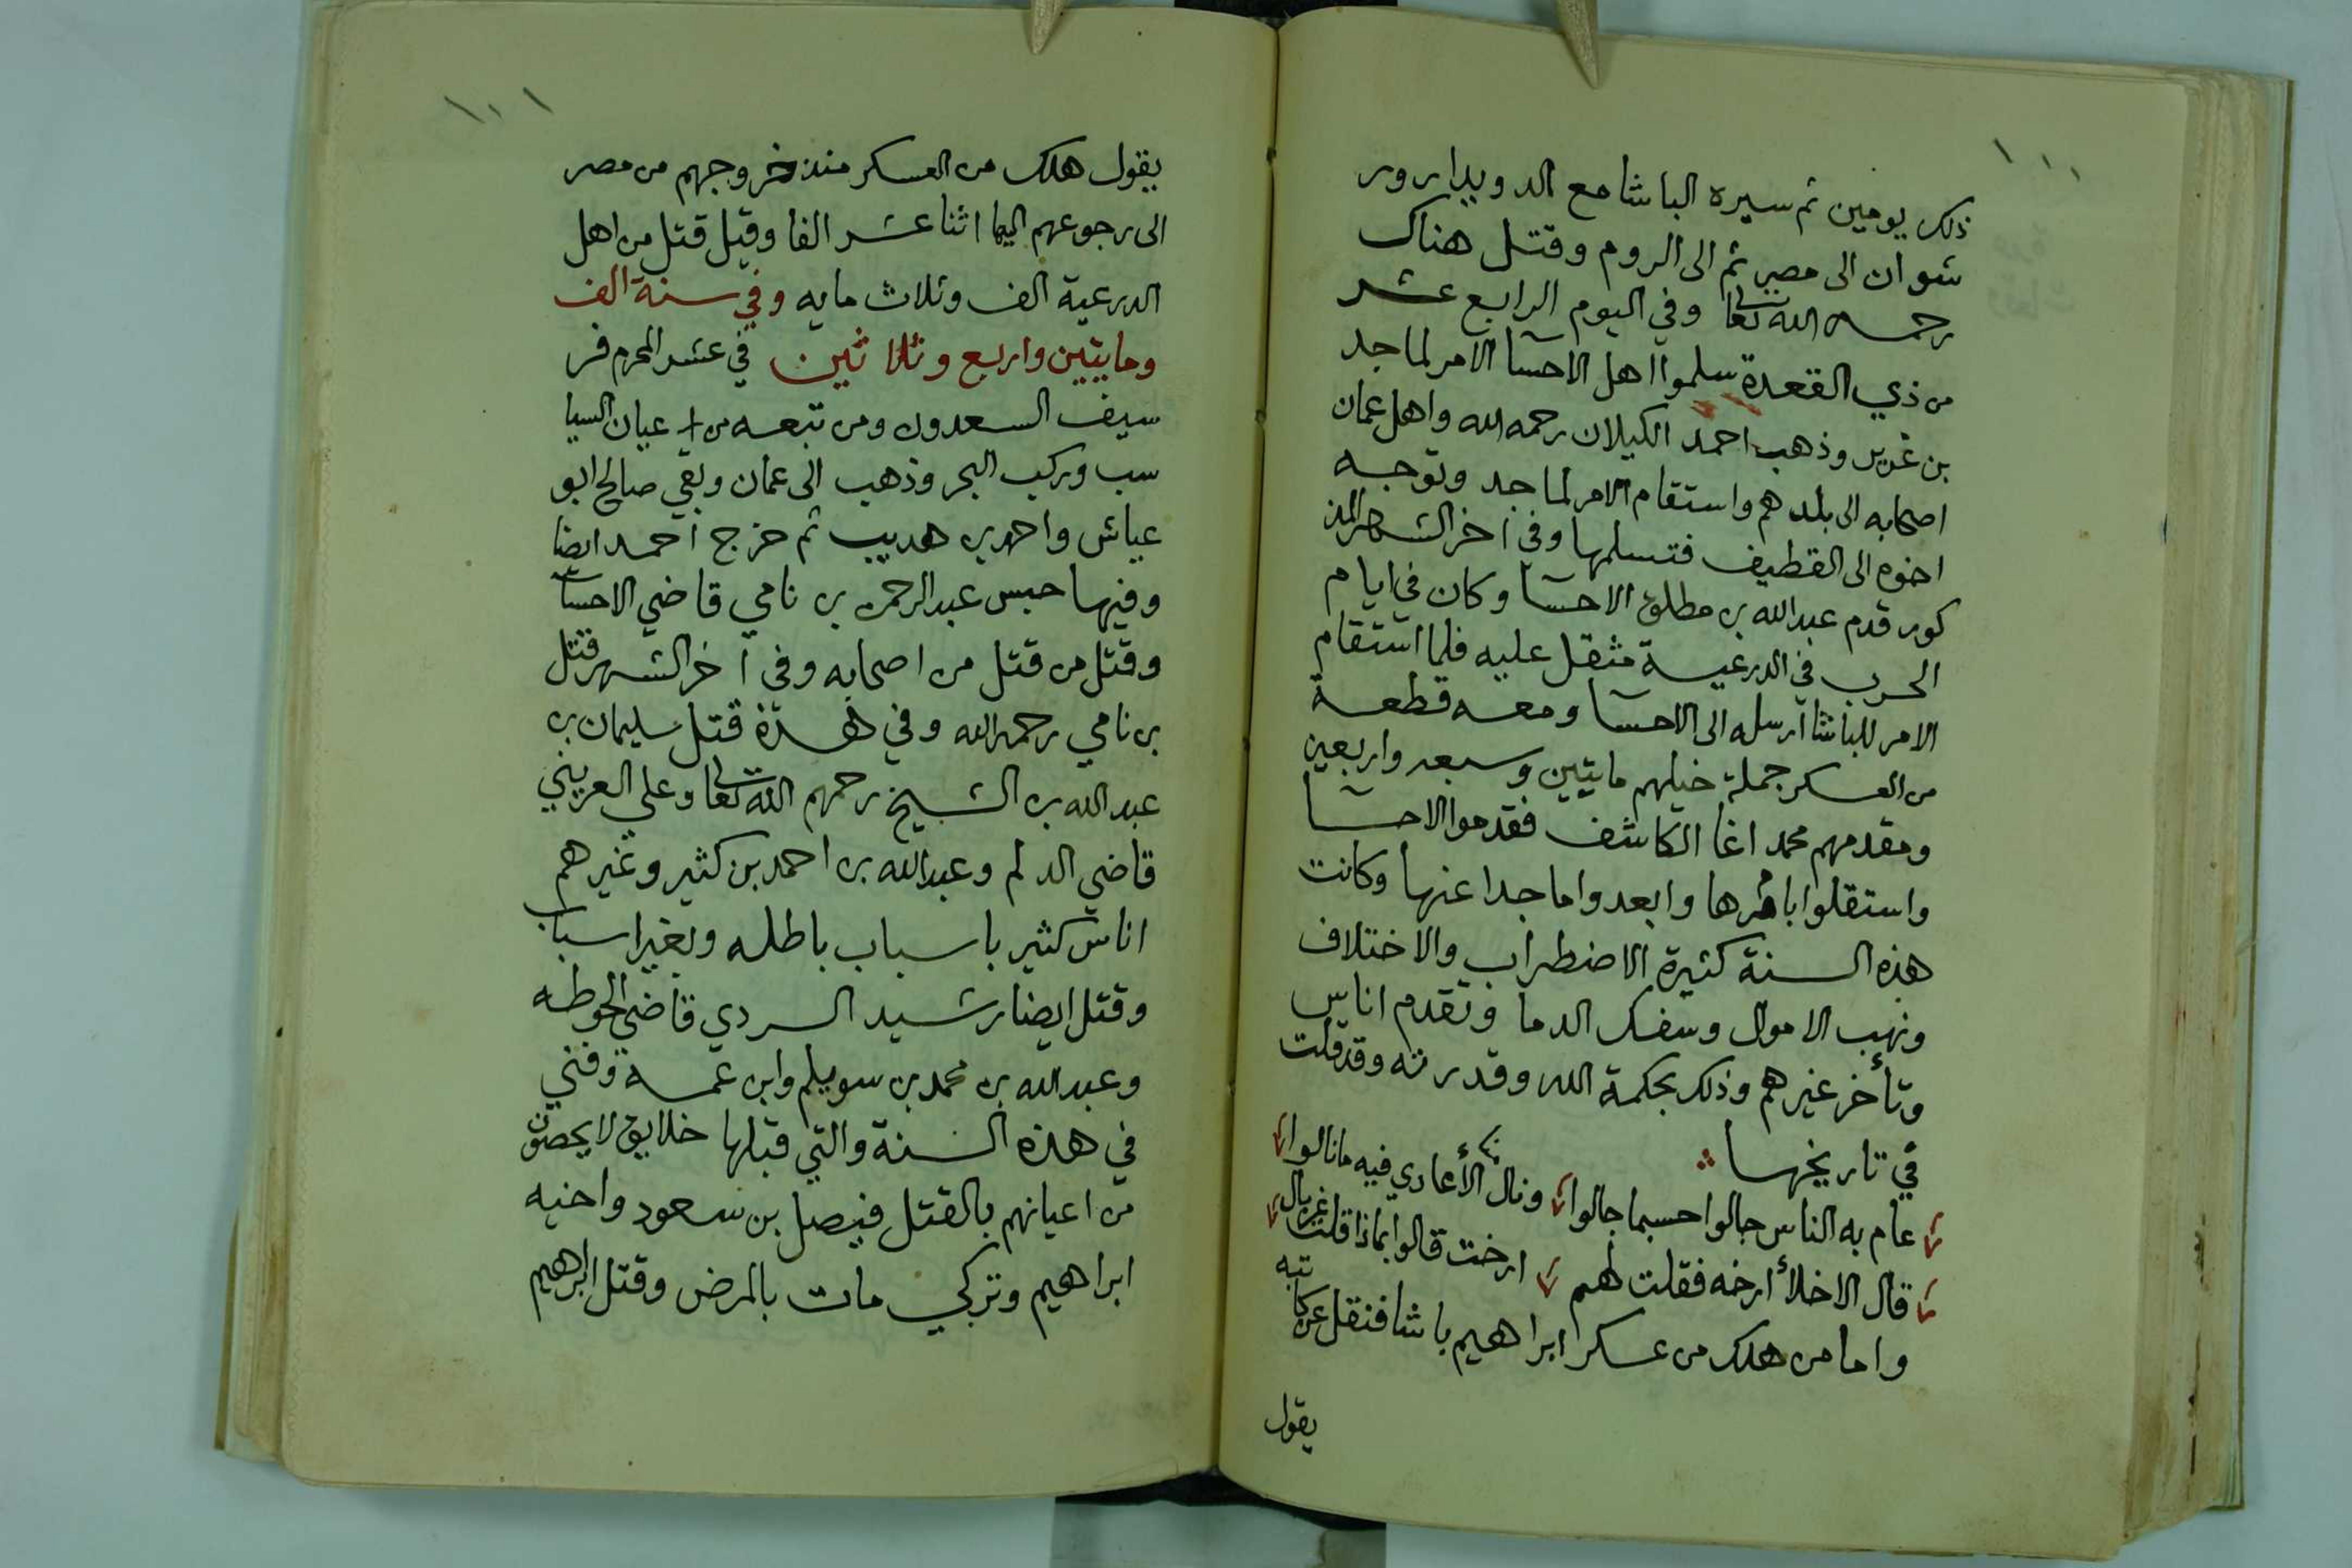 ١٠٠
ذلك يومين ثم سيره الباشا مع الدويدار ور
شوان الى مصر ثم الى الروم وقتل هناك
رحمه الله تعالى وفي اليوم الرابع عشر
من ذي القعدة سلموا اهل الاحسا الامر لماجد
بن غرير وذهب احمد الكيلان رحمه الله واهل عمان
اصحابه الى بلدهم واستقام الامر لماجد وتوجه
اخوه الى القطيف فتسلمها وفي اخر الشهر المذ
كور قدم عبدالله بن مطلق الاحسا وكان في ايام
الحرب في الدرعية مثقل عليه فلما استقام
الامر للباشا ارسله الى الاحسا ومعه قطعة
من العسكر جملة خيلهم مايتين وسبعه واربعين
ومقدمهم محمد اغا الكاشف فقدموا الاحسا
واستقلوا بامرها وابعدوا ماجدا عنها وكانت
هذه السنة كثيرة الاضطراب والاختلاف
ونهب الاموال وسفك الدما وتقدم اناس
وتأخر غيرهم وذلك بحكمة الله وقدرته وقد قلت
في تاريخها
عام به الناس جالوا حسبما جالوا ونال الأعادي فيه ما نالوا
قال الاخلأ ارخه فقلت لهم ارخت قالوا بماذا قلت غربال
واما من هلك من عسكر ابراهيم باشا فنقل عن كا
تبه
يقول
١٠١
يقول هلك من العسكر منذ خروجهم من مصر
الى رجوعهم اليها اثنا عشر الفا وقيل قتل من اهل
الدرعية الف وثلاث مايه وفي سنة الف
ومايتين واربع وثلاثين في عشر المحرم فر
سيف السعدون ومن تبعه من اعيان السيا
سب وركب البحر وذهب الى عمان وبقي صالح ابو
عياش واحمد بن هديب ثم خرج احمد ايضا
وفيها حبس عبدالرحمن بن نامي قاضي الاحسا
وقتل من قتل من اصحابه وفي اخر الشهر قتل
بن نامي رحمه الله وفي هذة قتل سليمان بن
عبد الله بن الشيخ رحمهم الله تعالى وعلي العريني
قاضي الدلم وعبدالله بن احمد بن كثير وغيرهم
اناس كثير باسباب باطله وبغير اسباب
وقتل ايضا رشيد السردي قاضي الحوطه
وعبد الله بن محمد بن سويلم وابن عمه وفني
في هذه السنة والتي قبلها خلايق لا يحصون
من اعيانهم بالقتل فيصل بن سعود واخيه
ابراهيم وتركي مات بالمرض وقتل ابراهيم